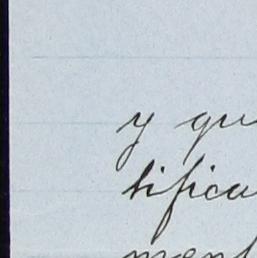 y qu
tifica
ment